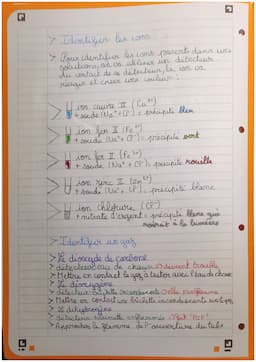 > Identifier les ions
> Pour identifier les ions présents dans une
solution, on va utiliser un détecteur
du contact de ce détecteur, le ion va
réagir et créer une couleur:
> ion cuivre II (Cu²⁺)
+ soude (Na⁺ + Cl⁻): précipité bleu
ion fer II (Fe²⁺)
+ soude (Na⁺ + Cl⁻): précipité vert
ion fer II (Fe³⁺)
+ soude (Na⁺ + Cl⁻): précipité rouille
> ion zinc II (Zn²⁺)
+ soude (Na⁺ + Cl⁻): précipité blanc
> ion chlorure (Cl⁻)
+ nitrate d'argent: précipité blanc qui
noircit à la lumière
> Identifier un gaz
> Le dioxyde de carbone
> détecteur: eau de chaux → devient trouble
> Mettre en contact le gaz à tester avec l'eau de chaux
> Le dioxygène
> détecteur: bûchette incandescente
> Mettre en contact une bûchette incandescente
> Le dihydrogène
> détecteur: allumette enflammée
> Approcher la flamme de l'ouverture du tube